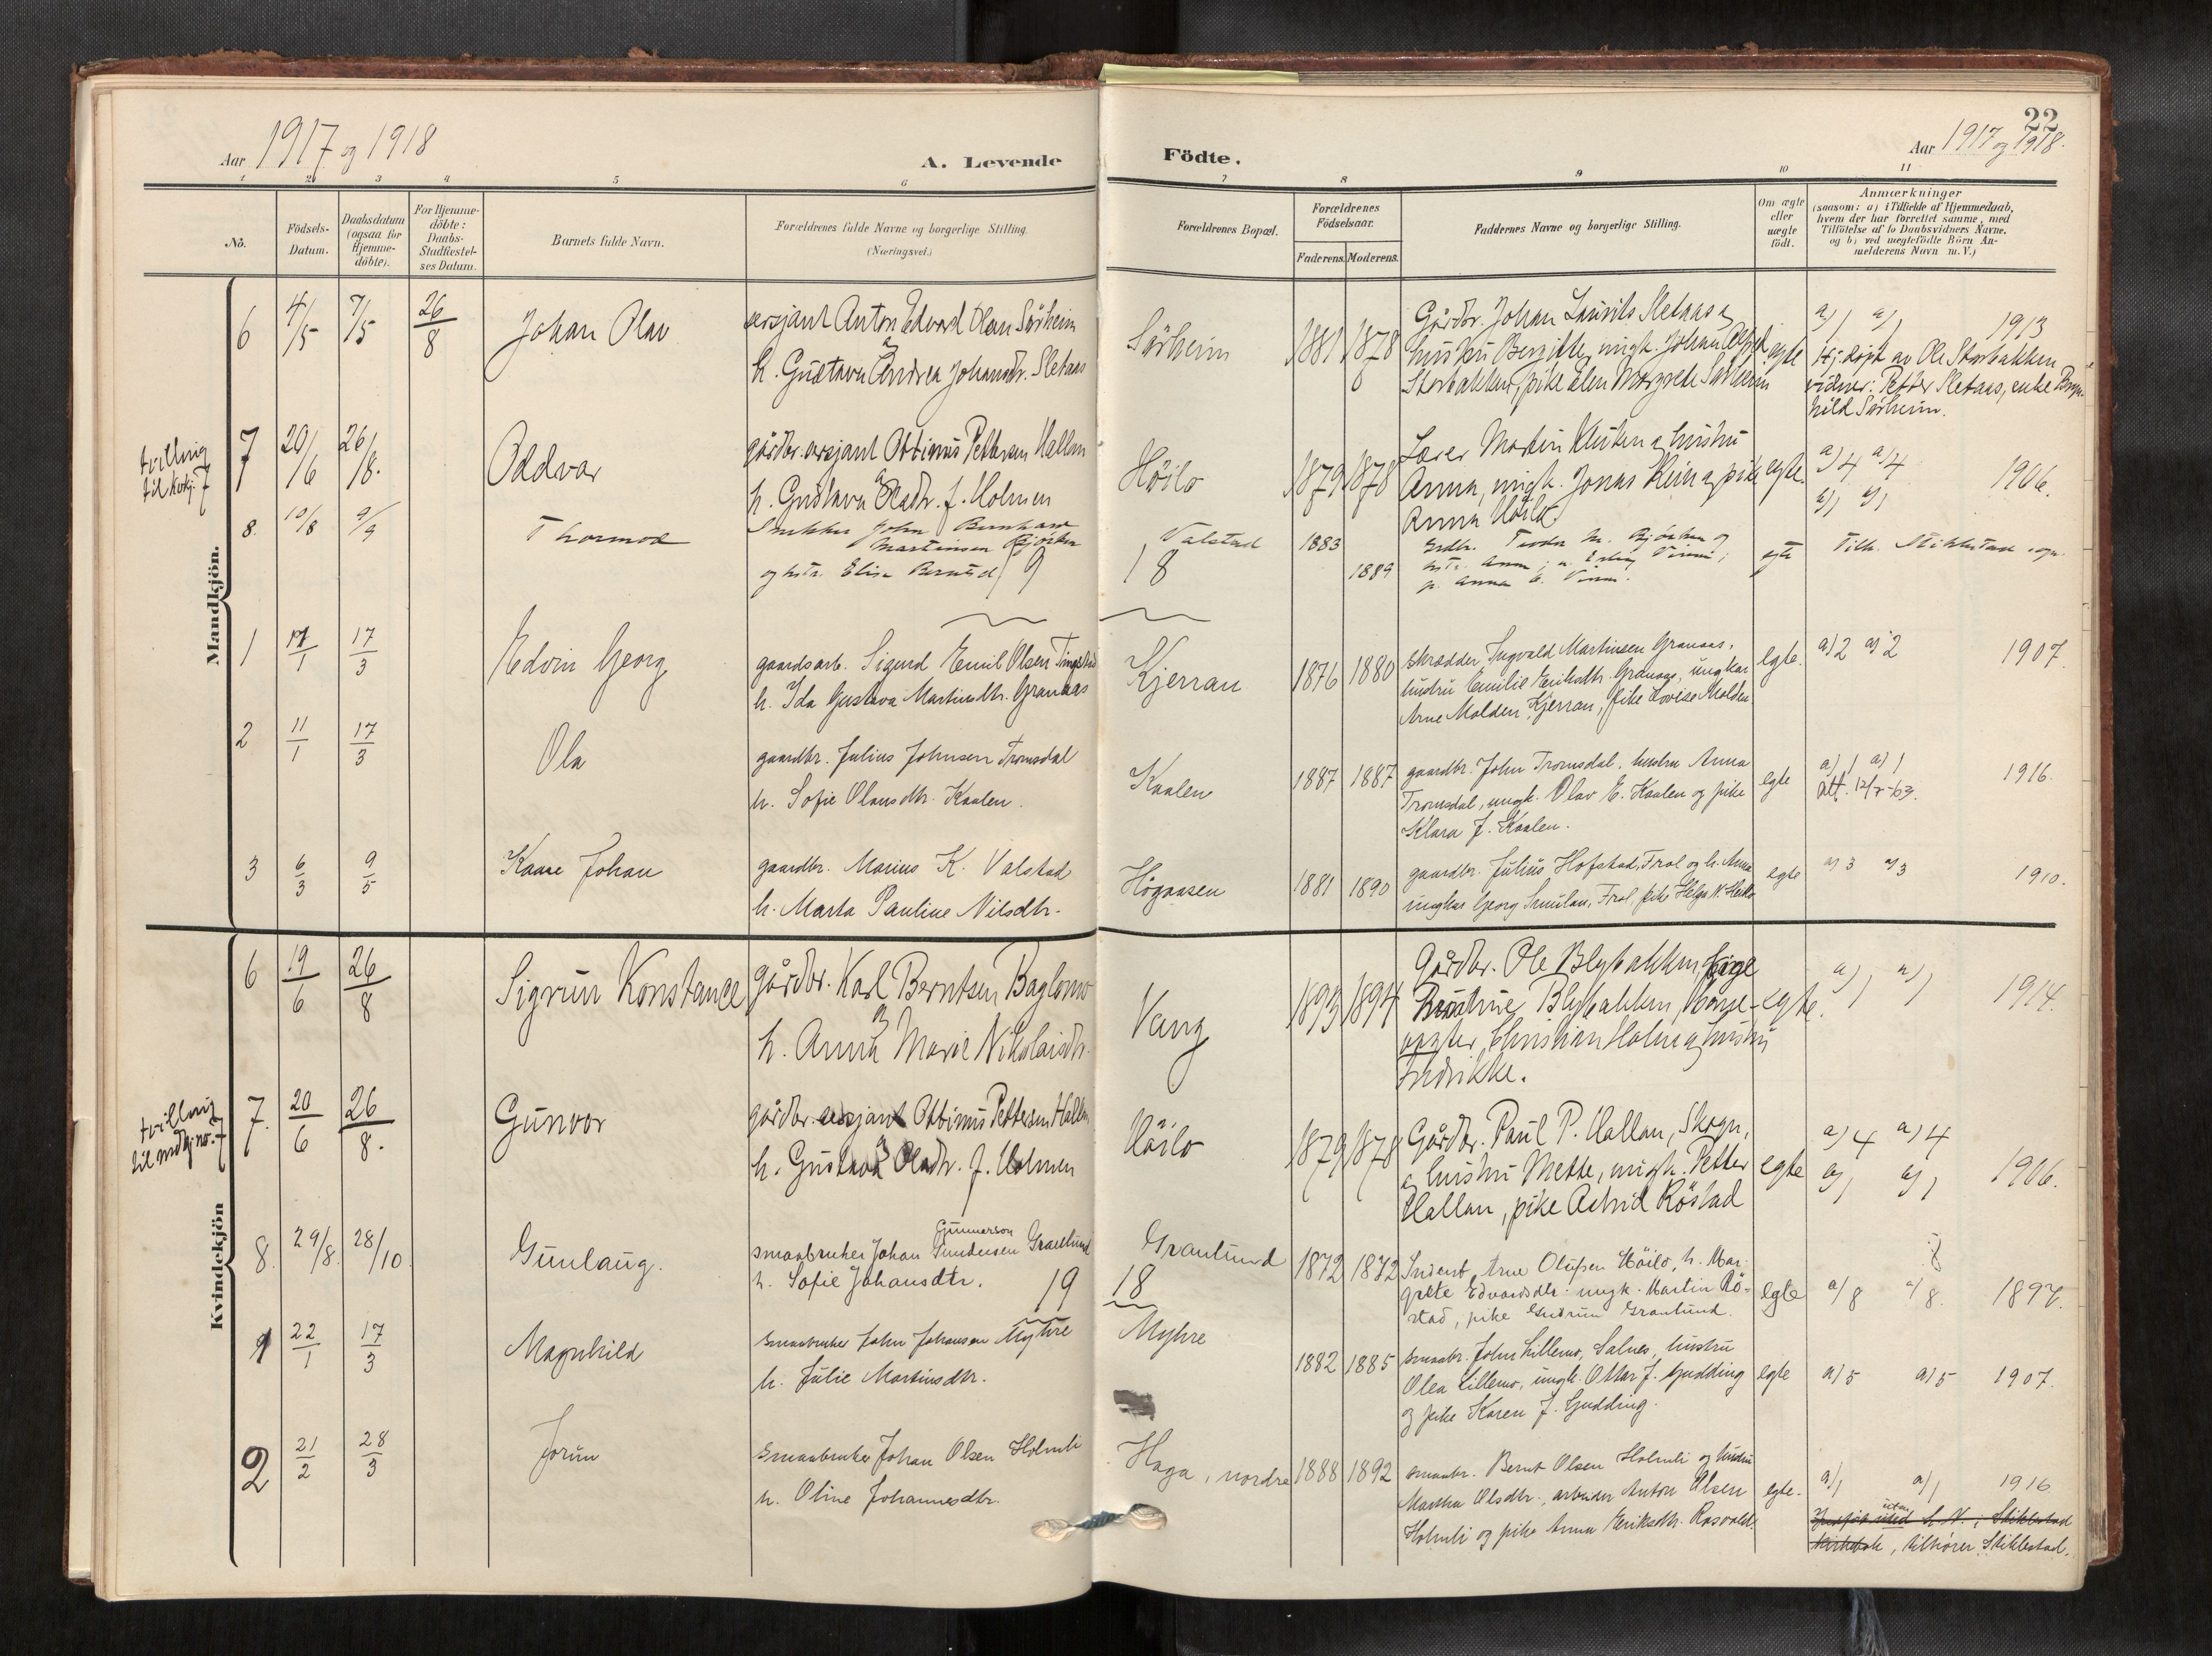 22
Aar 1917 og 1918
A. Levende Födte.
Aar 1917 og 1918.
1 2 3 4 5 6 7 8 9 10 11
No.
Födsels-
Datum.
Daabsdatum
(ogsaa for
Hjemme-
döbte).
For Hjemme-
döbte:
Daabs-
Stadfæstel-
ses Datum.
Barnets fulde Navn.
Forældrenes fulde Navne og borgerlige Stilling.
(Næringsvei.)
Forældrenes Bopæl.
Forældrenes
Födselsaar.
Faderens. Moderens.
Faddernes Navne og borgerlige Stilling.
Om ægte
eller
uægte
födt.
Anmærkninger
(saasom: a) i Tilfælde af Hjemmedaab,
hvem der har forrettet samme, med
Tilföielse af to Daabsvidners Navne,
og b) ved uegtefödte Börn An-
melderens Navn m. V.)
Mandkjön.
6 4/5 7/5 26/8 Johan Olav
sersjant Anton Edvard Olsen Sörheim
og
h. Gustava Andrea Johansdr. Sletaas
Sörheim 1881 1878
Gårdbr. Johan Laurits Sletaas og
hustru Bergitte, ungk. Johan
Storbakken, pike Elen Margrete Sörheim
egte
a) 1 a) 1 1913
Hj. döpt av Ole Storbakken
vidner: Petter Sletaas, enke Bryn-
hild Sörheim.
tvilling
til kvkj. 7
7 20/6 26/8. Oddvar
gårdbr. sersjant Ottinius Pettersen Hallan
og
h. Gustava Olsdtr. f. Holmen
Höilo 1879 1878
Lærer Martin Klüken og hustru
Anna, ungk. Jonas Klein og pike
Anna Höilo.
egte.
a) 4 a) 4
a) 1 a) 1 1906.
8. 10/8 9/9 Thormod
Snekker John Bernhard
Martinsen Björken
og hstr. Elisa Berntsd.
Valstad 1883 1889
Grdbr. Teodor M. Björken og
hstr. Anna; u. Erling Vinne;
p. Anna E. Vinne.
egte
Tilh. Stiklestad sogn.
19 18
1 12/1 17/3 Edvin Georg
gaardsarb. Sigurd Emil Olsen Tingstad
h. Ida Gustava Martinsdtr. Granaas
Kjerran 1876 1880
skrædder Ingvald Martinsen Granaas,
hustru Emilie Eriksdtr. Granaas, ungkar
Arne Molden, Kjerran, pike Lovise Molden
egte.
a) 2 a) 2 1907.
2 11/1 17/3 Ola
gaardbr. Julius Johnsen Tromsdal
h. Sofie Olausdtr. Kaalen.
Kaalen 1887 1887
gaardbr. John Tromsdal, hustru Anna
Tromsdal, ungk. Olav E. Kaalen og pike
Klara J. Kaalen.
egte
a) 1 a) 1 1916.
Att. 12/7-63.
3 6/3 9/5 Kaare Johan
gaardbr. Marius K. Valstad
h. Marta Pauline Nilsdtr.
Högaasen 1881 1890
gaardbr. Julius Hofstad, Frol og h. Anna
ungkar Georg Smulan, Frol, pike Helga N.
egte
a) 3 a) 3 1910.
Kvindekjön
6 19/6 26/8 Sigrun Konstance
Gårdbr. Karl Berntsen Baglomo
og
h. Anna Marie Nikolaisdtr.
Vang 1893 1894
Gårdbr. Ole Blybakken, pige
Blybakken,
Christian Holm og hustru
Fredrikke.
egte.
a) 1 a) 1 1914.
tvilling
til mdkj. no. 7
7. 20/6 26/8. Gunvor
gårdbr. sersjant Ottinius Pettersen Hallan
og
h. Gustava Olsdtr. f. Holmen
Höilo 1879 1878
Gårdbr. Paul P. Hallan, Skogn,
og hustru Mette, ungk. Petter
Hallan, pike Astrid Röstad
egte
a) 4 a) 4
a) 1 a) 1 1906.
8. 29/8. 28/10. Gunlaug.
Gunnerson
smaabruker Johan Gundersen Granlund
h. Sofie Johansdtr.
Granlund 1872 1872
Arne Olufsen Höilo, h. Mar-
grete Edvardsdtr. ungk. Martin Rö-
stad, pike Gudrun Granlund.
egte
8
a) 8 a) 8. 1897.
19 18
1 22/1 17/3 Magnhild
smaabruker John Johansen Myhre
h. Julie Martinsdtr.
Myhre 1882 1885
smaabr. John Lillemo, Salnes, hustru
Olea Lillemo, ungk. Ottar J. Gudding
og pike Karen J. Gudding.
egte
a) 5 a) 5 1907.
2 21/2 28/3 Jorun
smaabruker Johan Olsen Holmli
h. Oline Johannesdtr.
Haga, nordre 1888 1892
smaabr. Bernt Olsen Holmli og hustru
Martha Olsdtr., arbeider Anton Olsen
Holmli og pike Anna Eriksdtr. Rosvold.
egte.
a) 1 a) 1 1916
Stiklestad
Kirkebok, tilhører Stiklestad.